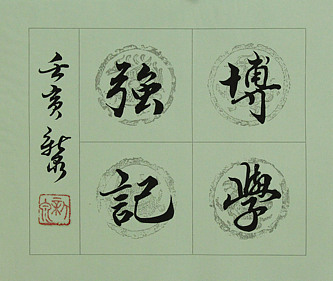 博學
強記
壬寅